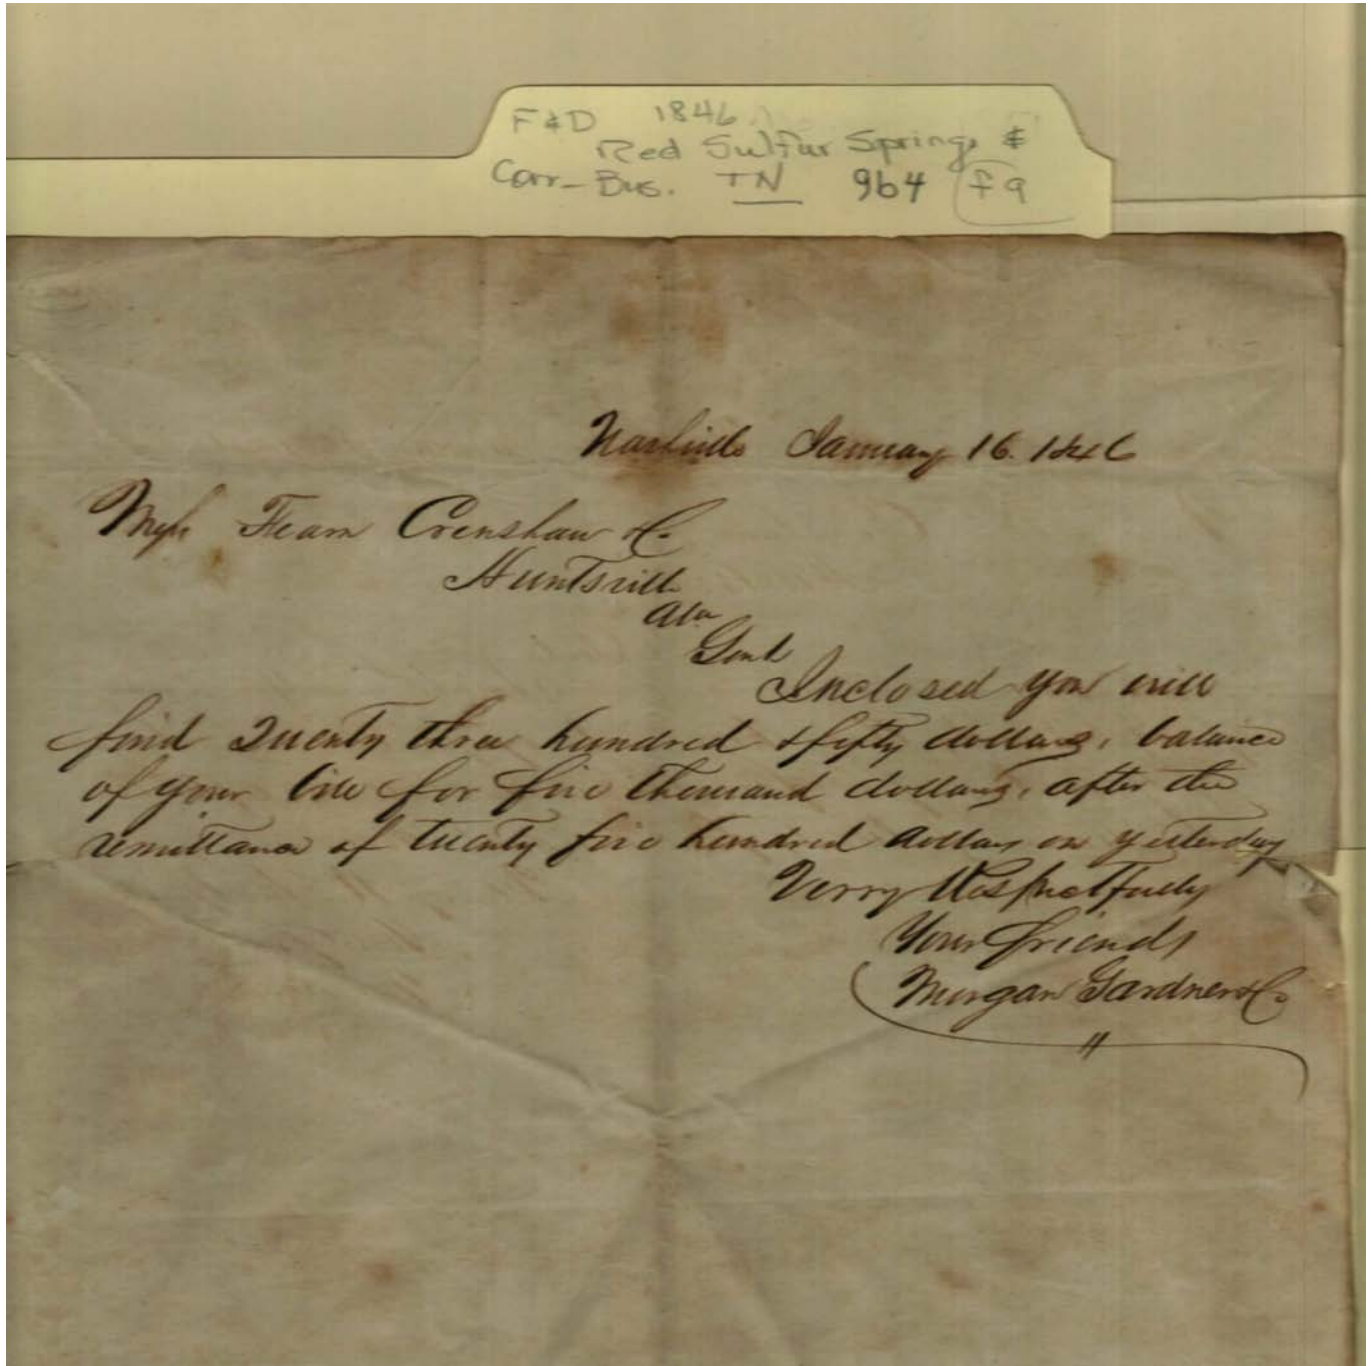 F & D 1846
Red Sulfur Springs &
Corr-Bus. TN 964 f9
Nashville January 16. 1846
Messrs Fearn Crenshaw & Co
Huntsville
Ala
Gent
Inclosed you will
find Twenty three hundred & fifty dollars, balance
of your bill for five thousand dollars, after the
remittance of twenty five hundred dollars on yesterday
Verry Respectfully
Your friends
Morgan Gardner & Co